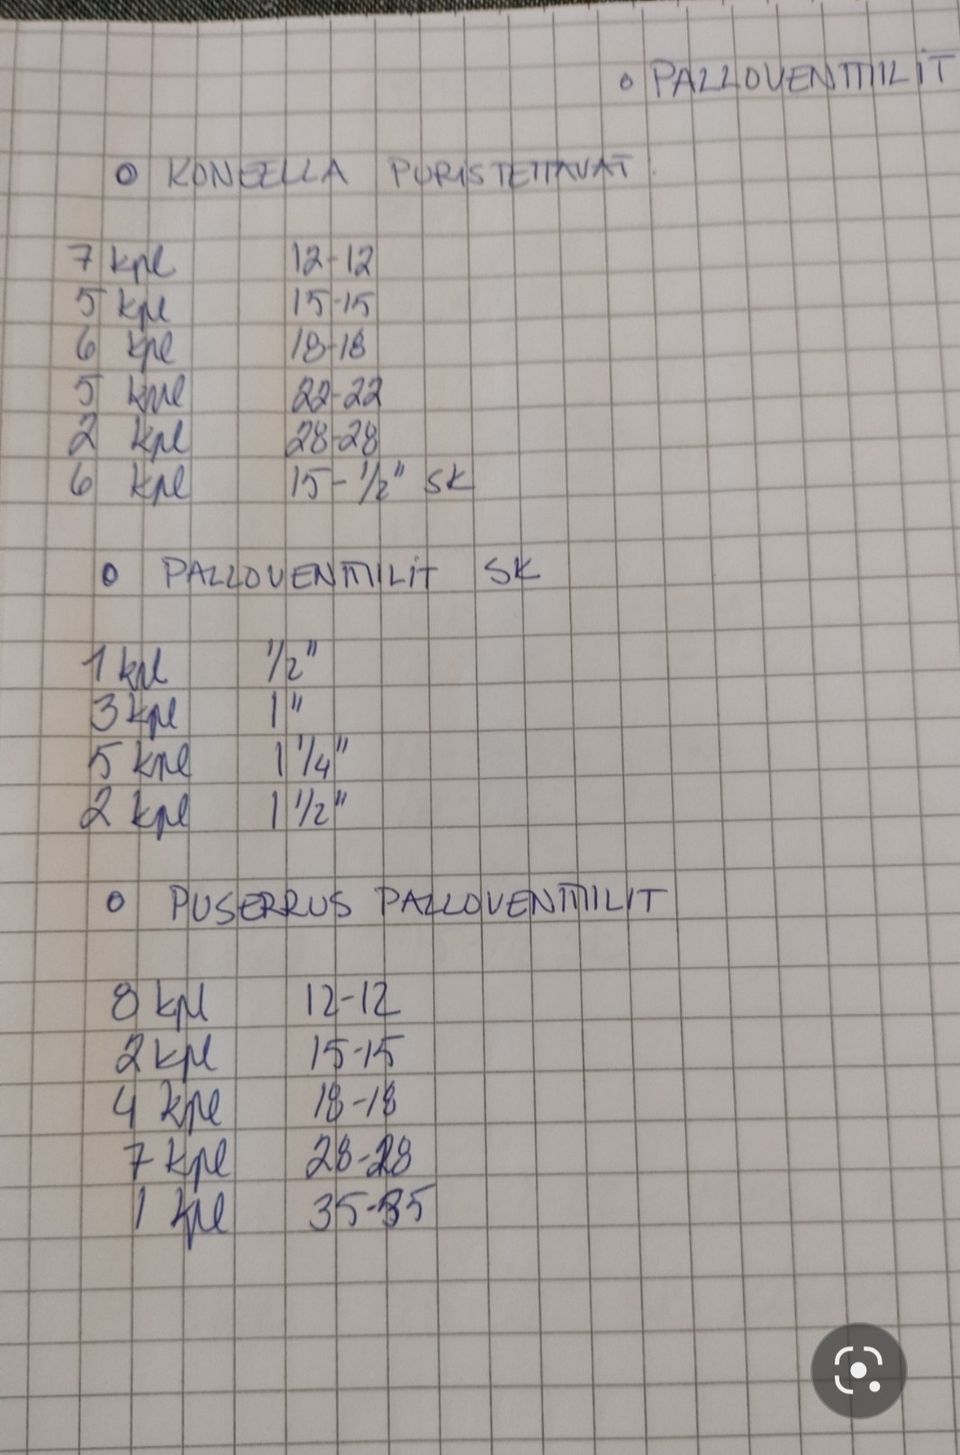 o PALLOVENTTIILIT
o KONEELLA PURISTETTAVAT
7 kpl 12-12
5 kpl 15-15
6 kpl 18-18
5 kpl 22-22
2 kpl 28-28
6 kpl 15-1/2" SK
o PALLOVENTTIILIT SK
1 kpl 1/2"
3 kpl 1"
5 kpl 1 1/4"
2 kpl 1 1/2"
o PUSERRUS PALLOVENTTIILIT
8 kpl 12-12
2 kpl 15-15
4 kpl 18-18
7 kpl 28-28
1 kpl 35-35